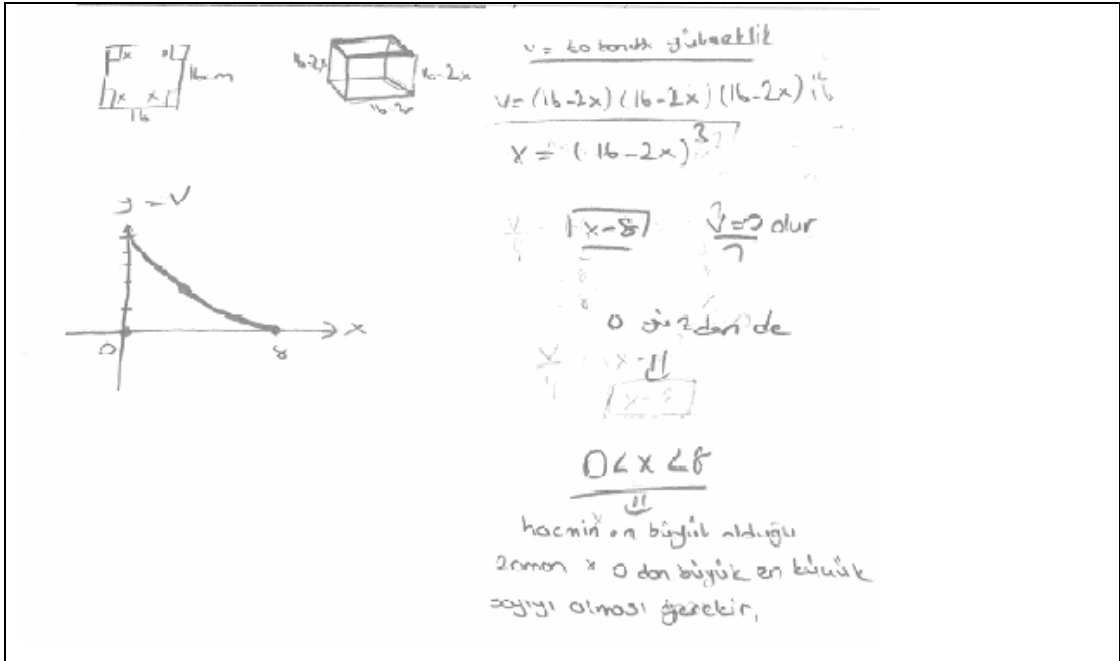 x
x x
16
16-2x
16-2x
16-2x
V = taban x yükseklik
V=(16-2x)(16-2x)(16-2x)
V = (16-2x)³
y = V
0 8 x
x=8 V=0 olur
0 yüzden de
0<x<8
hacmin en büyük olduğu
zaman x 0 dan büyük en küçük
sayıyı olması gerekir,